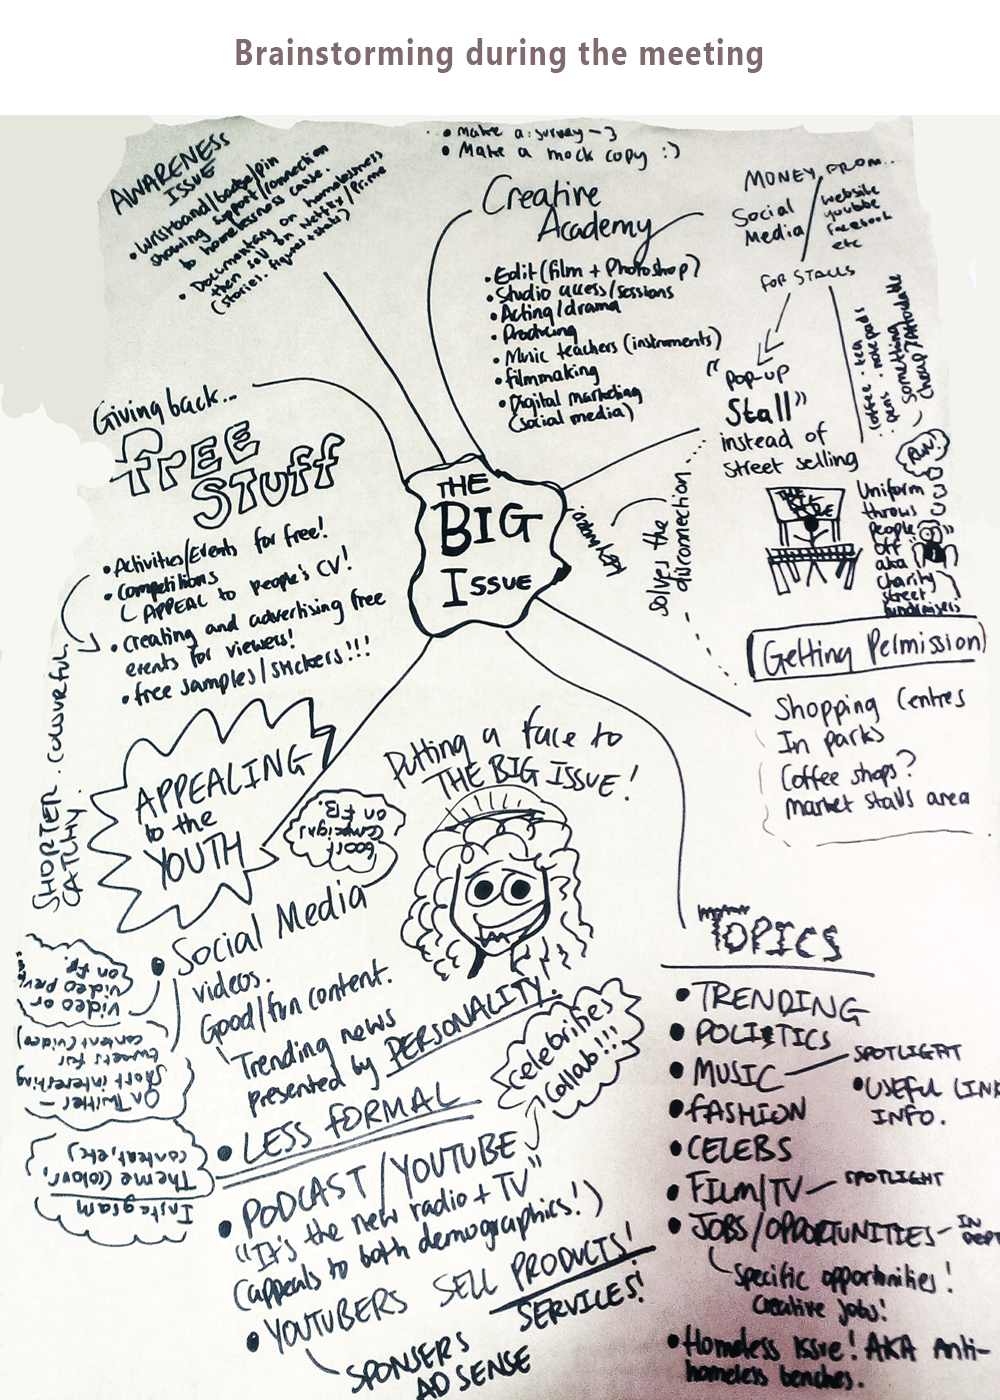 Brainstorming during the meeting
AWARENESS
ISSUE
• Wristband/badge/pin
showing support/connection
to homelessness cause.
• Documentary on homelessness
then sell on Netflix/Prime
(stories. figures + stats)
• make a survey
• Make a mock copy :)
Creative
Academy
• Edit (film + Photoshop)
• Studio access/sessions
• Acting/drama
• Producing
• Music teachers (instruments)
• filmmaking
• Digital marketing
(social media)
MONEY FROM...
Social
Media
website
youtube
facebook
etc
FOR STALLS
"Pop-up
Stall"
instead of
street selling
coffee . tea
pens . notepads
something
cheap/Affordable
RUN!
Uniform
throws
people
off
aka
charity
street
fundraisers
Giving back...
FREE
STUFF
• Activities/Events for free!
• Competitions
APPEAL to people's CV!
• Creating and advertising free
events for viewers!
• free samples/stickers!!!
SHORTER . colourful.
CATCHY.
THE
BIG
ISSUE
solves the
disconnection
Getting Permission
Shopping Centres
In parks
Coffee shops?
market stalls area
APPEALING
to the
YOUTH
Putting a face to
THE BIG ISSUE!
boost
campaigns
on FB.
• Social Media
videos.
Good/fun content.
Trending news
presented by PERSONALITY.
video or
video
on FB.
On Twitter –
short interesting
tweets for
content (video)
Instagram
Theme (colour,
content, etc)
Celebrities
Collab!!!
• LESS FORMAL
• PODCAST/YOUTUBE
"It's the new radio + TV"
(appeals to both demographics!)
• YOUTUBERS SELL PRODUCTS!
SERVICES!
SPONSERS
AD SENSE
TOPICS
• TRENDING
• POLITICS
• MUSIC – SPOTLIGHT
• USEFUL LINK
INFO.
• FASHION
• CELEBS
• FILM/TV – SPOTLIGHT
• JOBS/OPPORTUNITIES – IN
DEPT
specific opportunities!
Creative jobs!
• Homeless Issue! AKA Anti-
homeless benches.